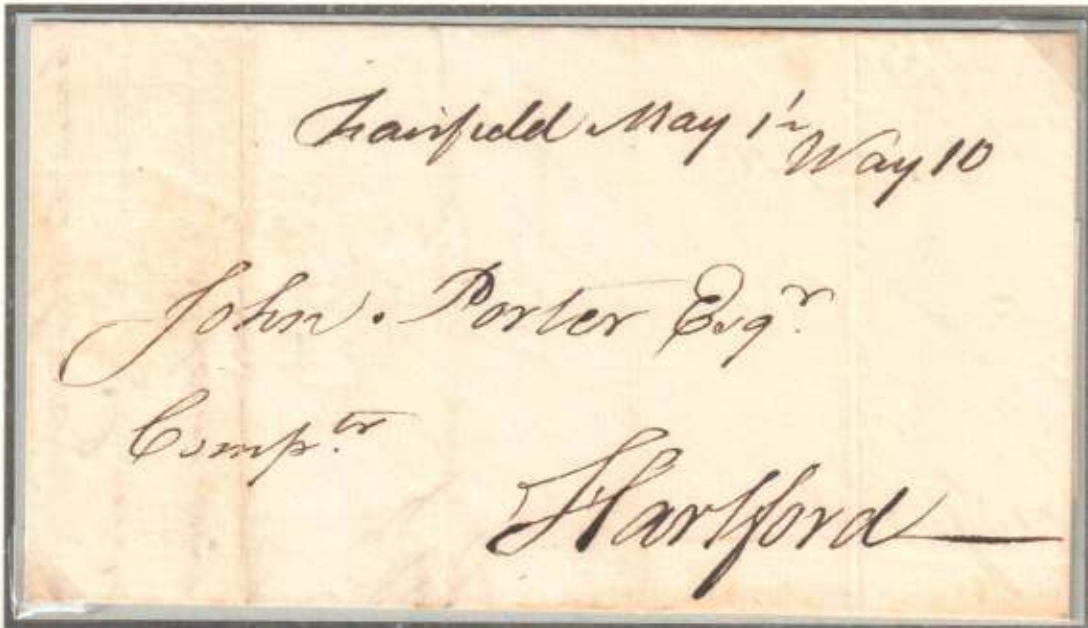 Fairfield May 1st
Way 10
John. Porter Esqr.
Comptr.
Hartford